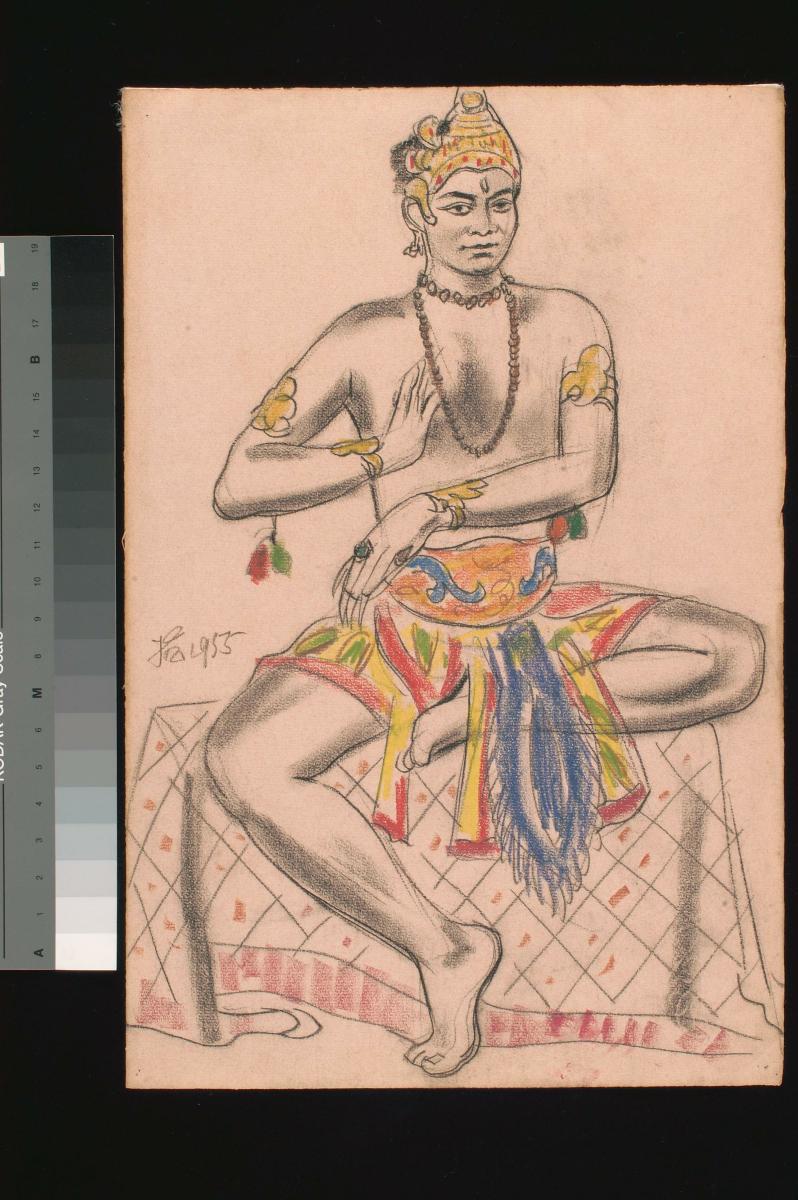 KODAK Gray Scale
A 1 2 3 4 5 6 M 8 9 10 11 12 13 14 15 B 17 18 19
1955